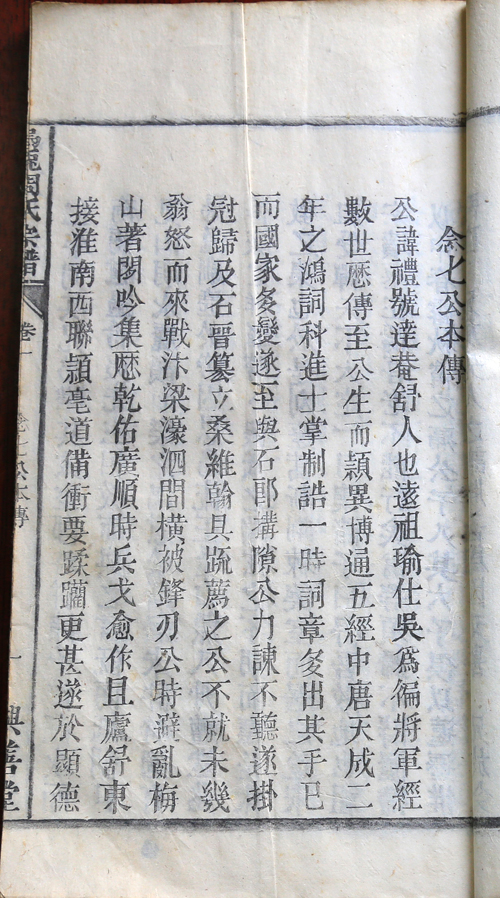 念七公本傳
公諱禮號達菴舒人也遠祖瑜仕吳為偏將軍經
數世歷傳至公生而穎異博通五經中唐天成二
年之鴻詞科進士掌制誥一時詞章多出其手已
而國家多變遂至與石郎搆隙公力諫不聽遂掛
冠歸及石晉篡立桑維翰具疏薦之公不就未幾
翁怒而來戰汴梁濠泗間橫被鋒刃公時避亂梅
山著閔吟集歷乾佑廣順時兵戈愈作且廬舒東
接淮南西聯潁亳道備衝要蹂躪更甚遂於顯德
周氏宗譜
卷一
念七公本傳
一
興善堂